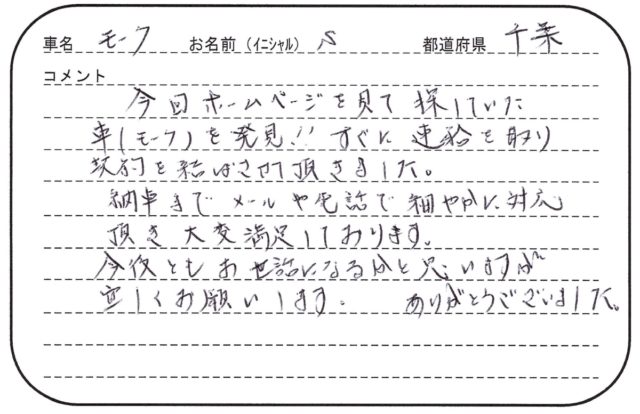 車名 モーク お名前(イニシャル) S 都道府県 千葉
コメント
今回ホームページを見て探していた
車(モーク)を発見!! すぐに連絡を取り
契約を結ばさせて頂きました。
納車までメールや電話で細やかに対応
頂き大変満足しております。
今後ともお世話になるかと思いますが
宜しくお願いします。 ありがとうございました。